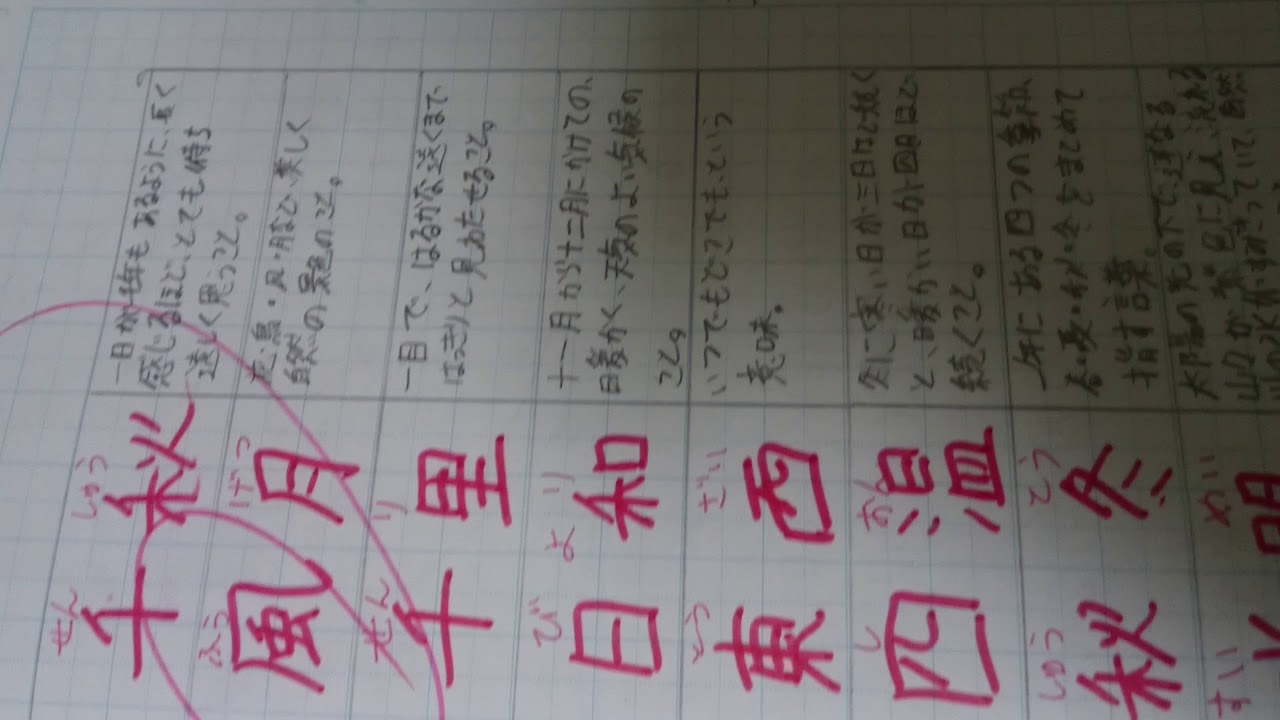 せんしゅう
千秋
一日が千年もあるように、長く
感じるほど、とても待ち
遠しく思うこと。
ふうげつ
風月
花・鳥・風・月など、美しく
自然の景色のこと。
せんり
千里
一目で、はるかな遠くまで
はっきりと見わたせること。
びより
日和
十一月から十二月にかけての、
暖かく、天気のよい気候の
こと。
とうざい
東西
いつでもどこでもという
意味。
しおん
四温
冬に寒い日が三日ほど続く
と、暖かい日が四日ほど
続くこと。
しゅうとう
秋冬
一年にある四つの季節
春・夏・秋・冬をまとめて
指す言葉
すいめい
水明
太陽の光の下で